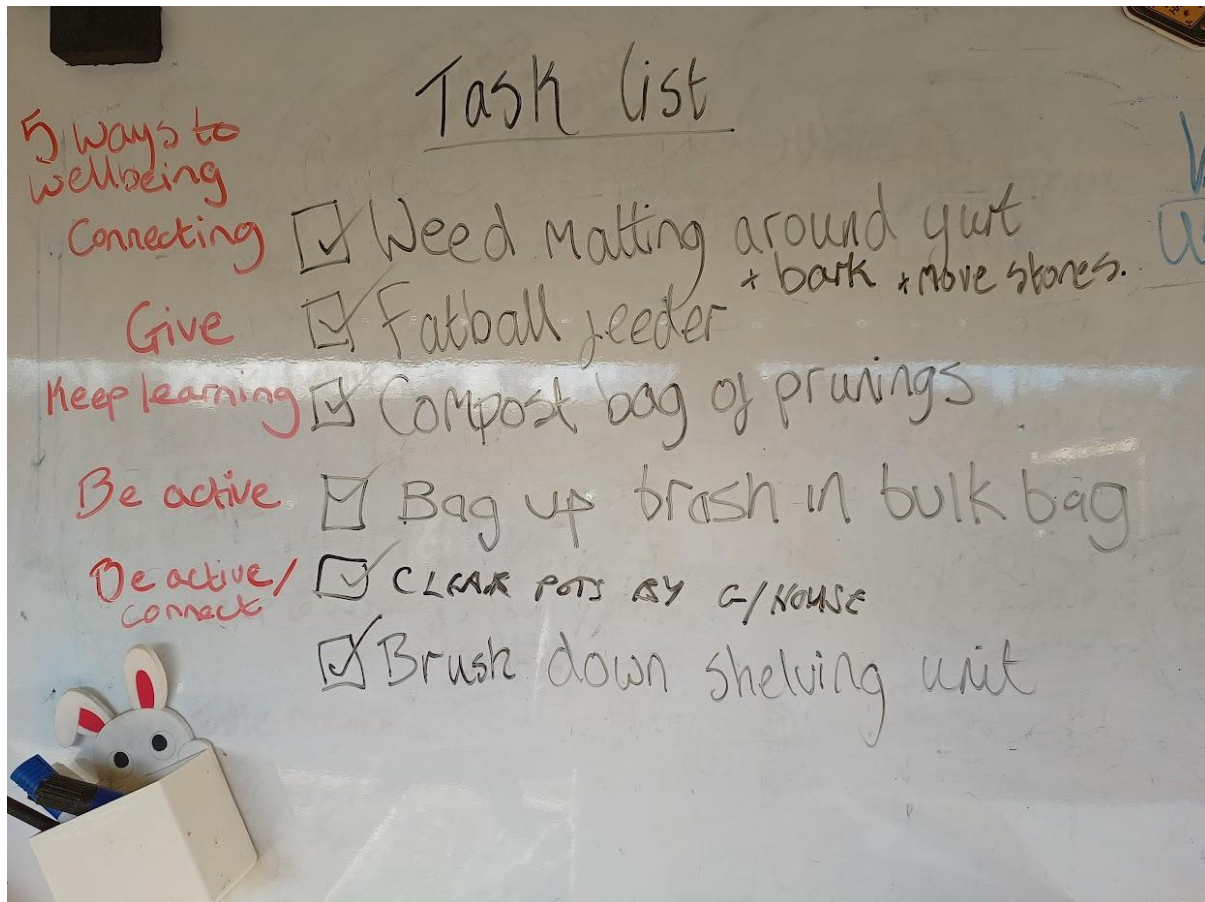 Task list
5 ways to
wellbeing
Connecting ☑ Weed matting around yurt
+ bark + move stones.
Give ☑ Fatball feeder
Keep learning ☑ Compost bag of prunings
Be active ☑ Bag up brash in bulk bag
Be active/
connect ☑ CLEAR POTS BY G/HOUSE
☑ Brush down shelving unit